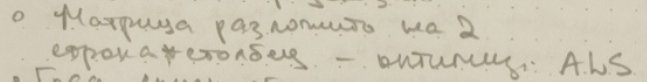 ◦ Матрица разложить на 2
строка*столбец – оптимиз. ALS